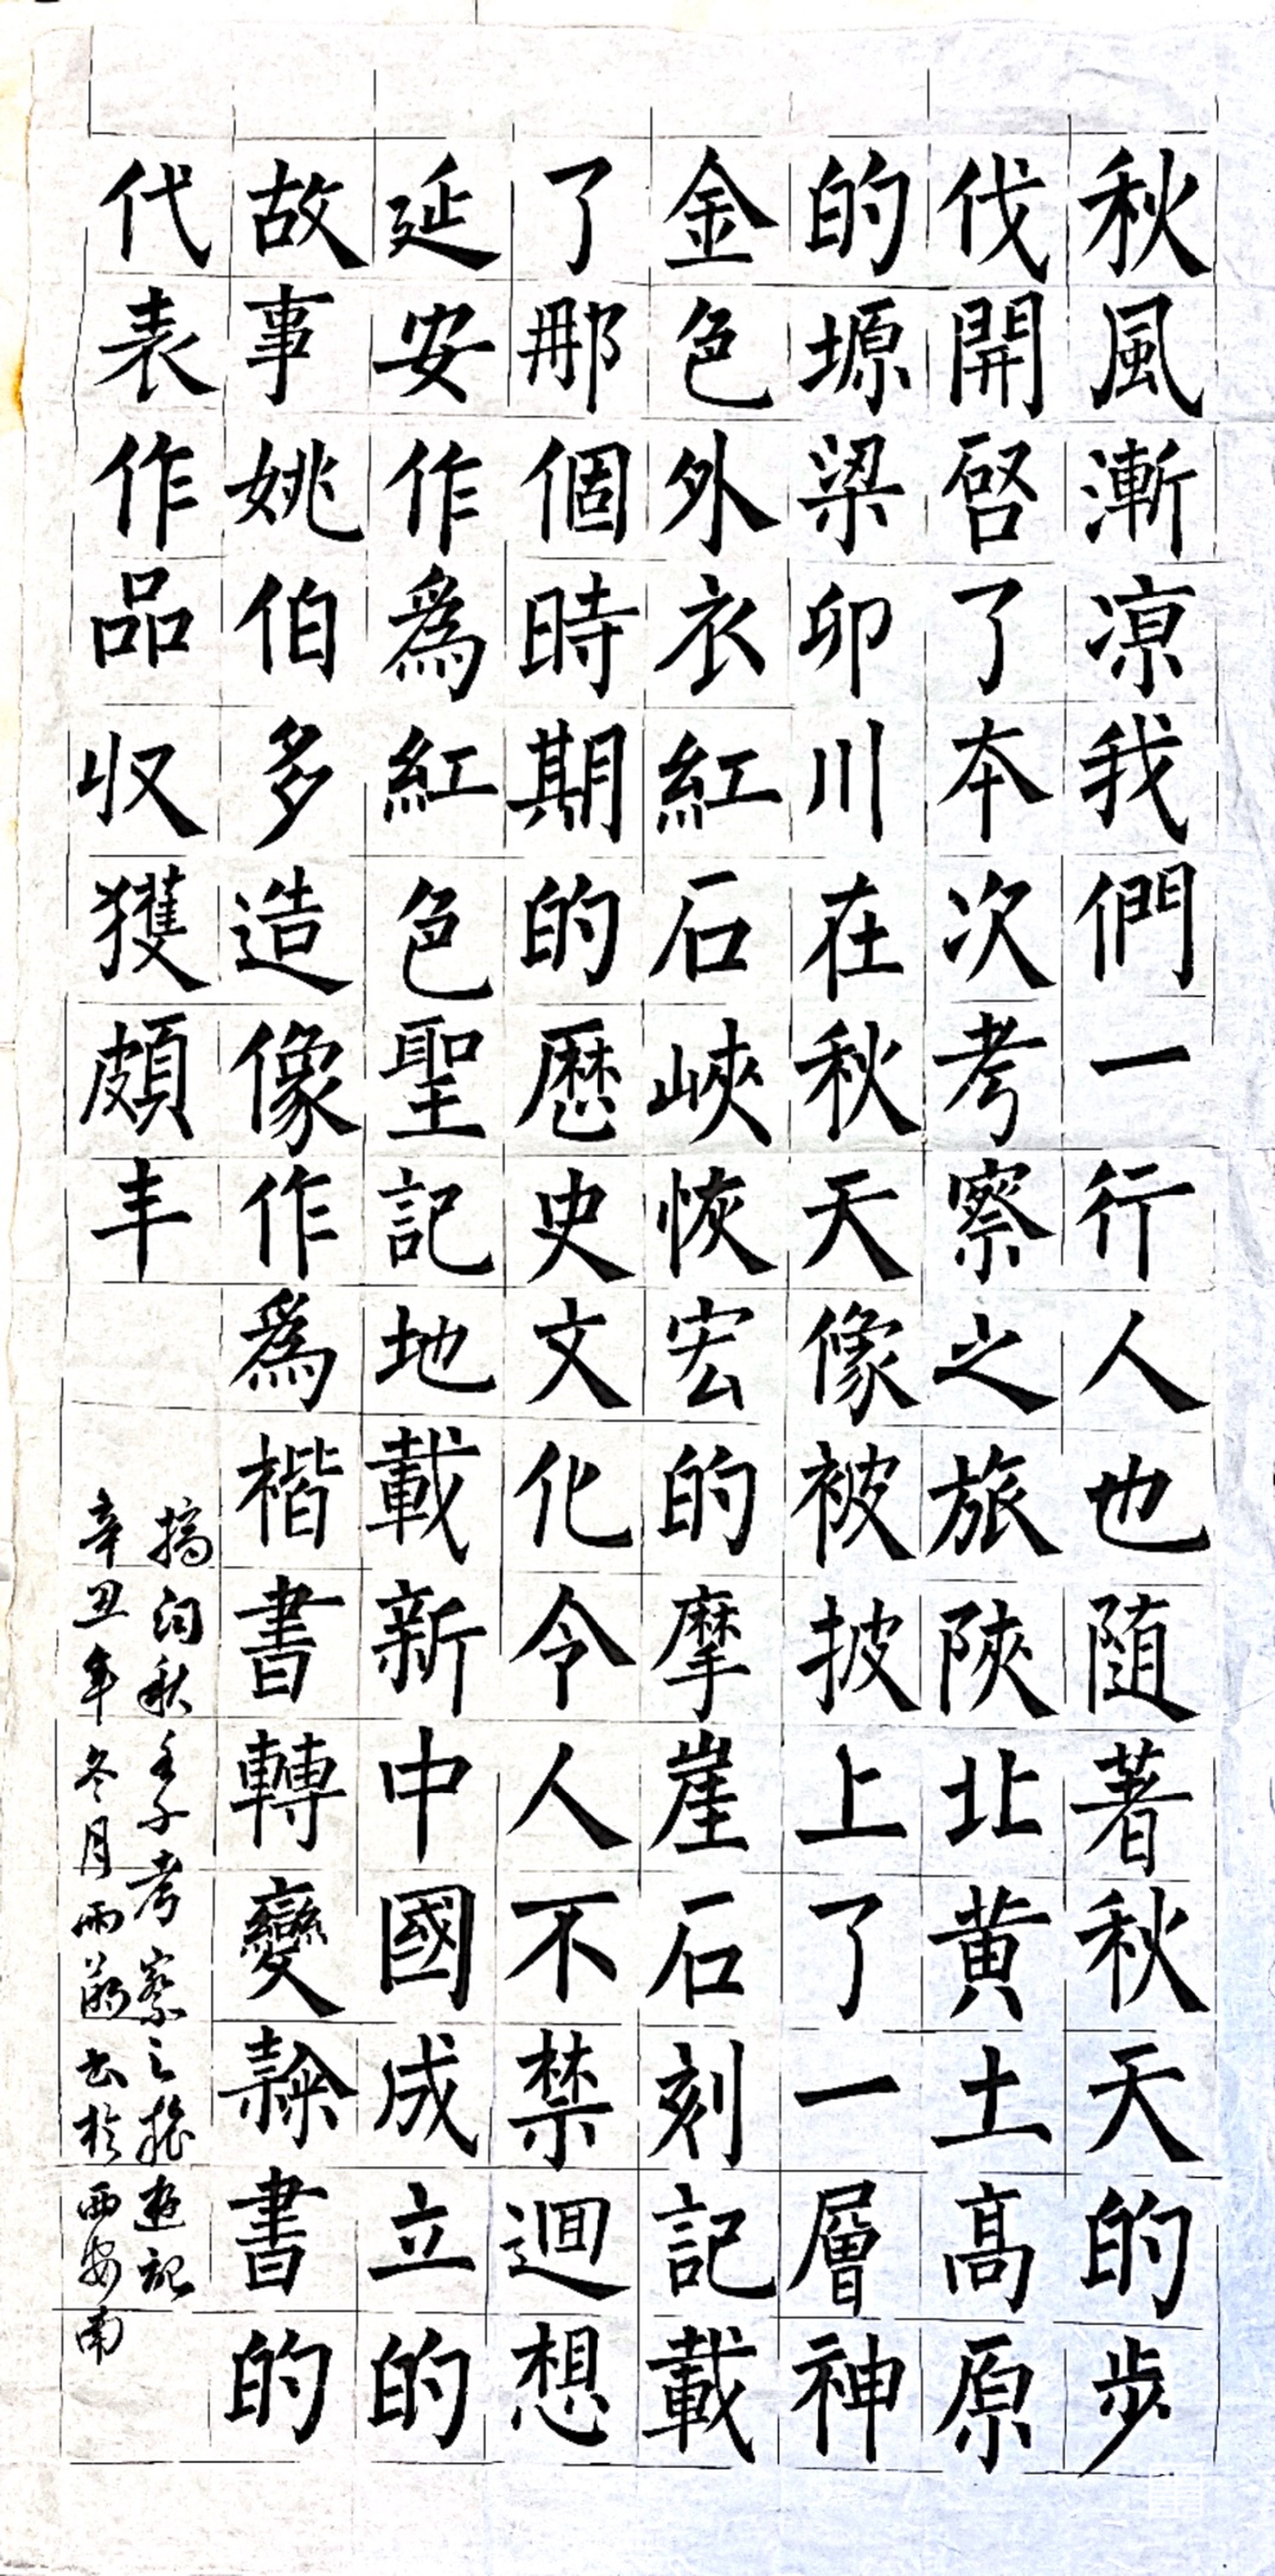 秋風漸凉我們一行人也随著秋天的步
伐開啓了本次考察之旅陝北黄土高原
的塬梁卯川在秋天像被披上了一層神
金色外衣紅石峽恢宏的摩崖石刻記載
了那個時期的歷史文化令人不禁迴想
延安作爲紅色聖記地載新中國成立的
故事姚伯多造像作爲楷書轉變隸書的
代表作品収獲頗丰
摘问秋子考察之遊記
辛丑年冬月雨书於西安南